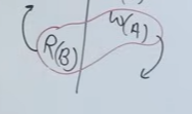 R(B) W(A)